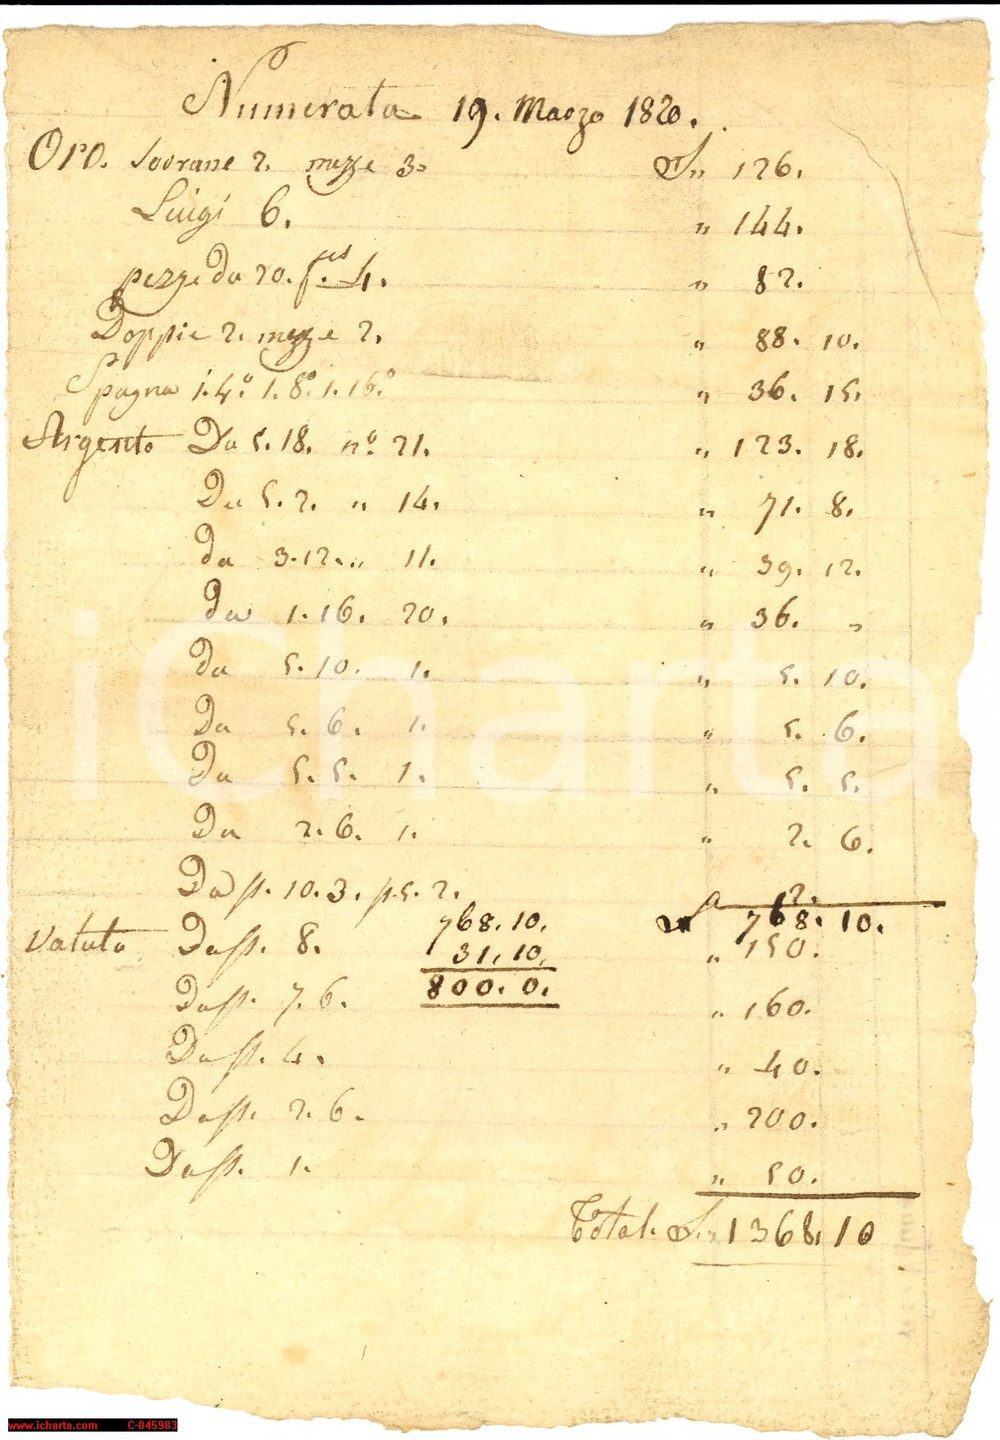 Numerata 19. Marzo 1820.
Oro. Sovrane 2. mezze 3. L.,, 126.
Luigi 6. ,, 144.
pezze da 20. f.chi 4. ,, 82.
Doppie 2. mezze 2. ,, 88. 10.
Spagna 1.4.o 1.8.o 1.16.o ,, 36. 15.
Argento Da 5.18. n.o 21. ,, 123. 18.
Da 5.2. ,, 14. ,, 71. 8.
da 3.12. ,, 11. ,, 39. 12.
da 1.16. 20. ,, 36. ,,
da 5.10. 1. ,, 5. 10.
Da 5.6. 1. ,, 5. 6.
Da 5.5. 1. ,, 5. 5.
Da 2.6. 1. ,, 2. 6.
Da p. 10.3. p.5.2. 12.
768.10. 768. 10.
Valuta Da p. 8. 31.10. ,, 150.
800.0.
Da p. 7.6. ,, 160.
Da p. 4. ,, 40.
Da p. 2.6. ,, 200.
Da p. 1. ,, 50.
Total. L. 1368.10
iCharta
www.icharta.com C-045983